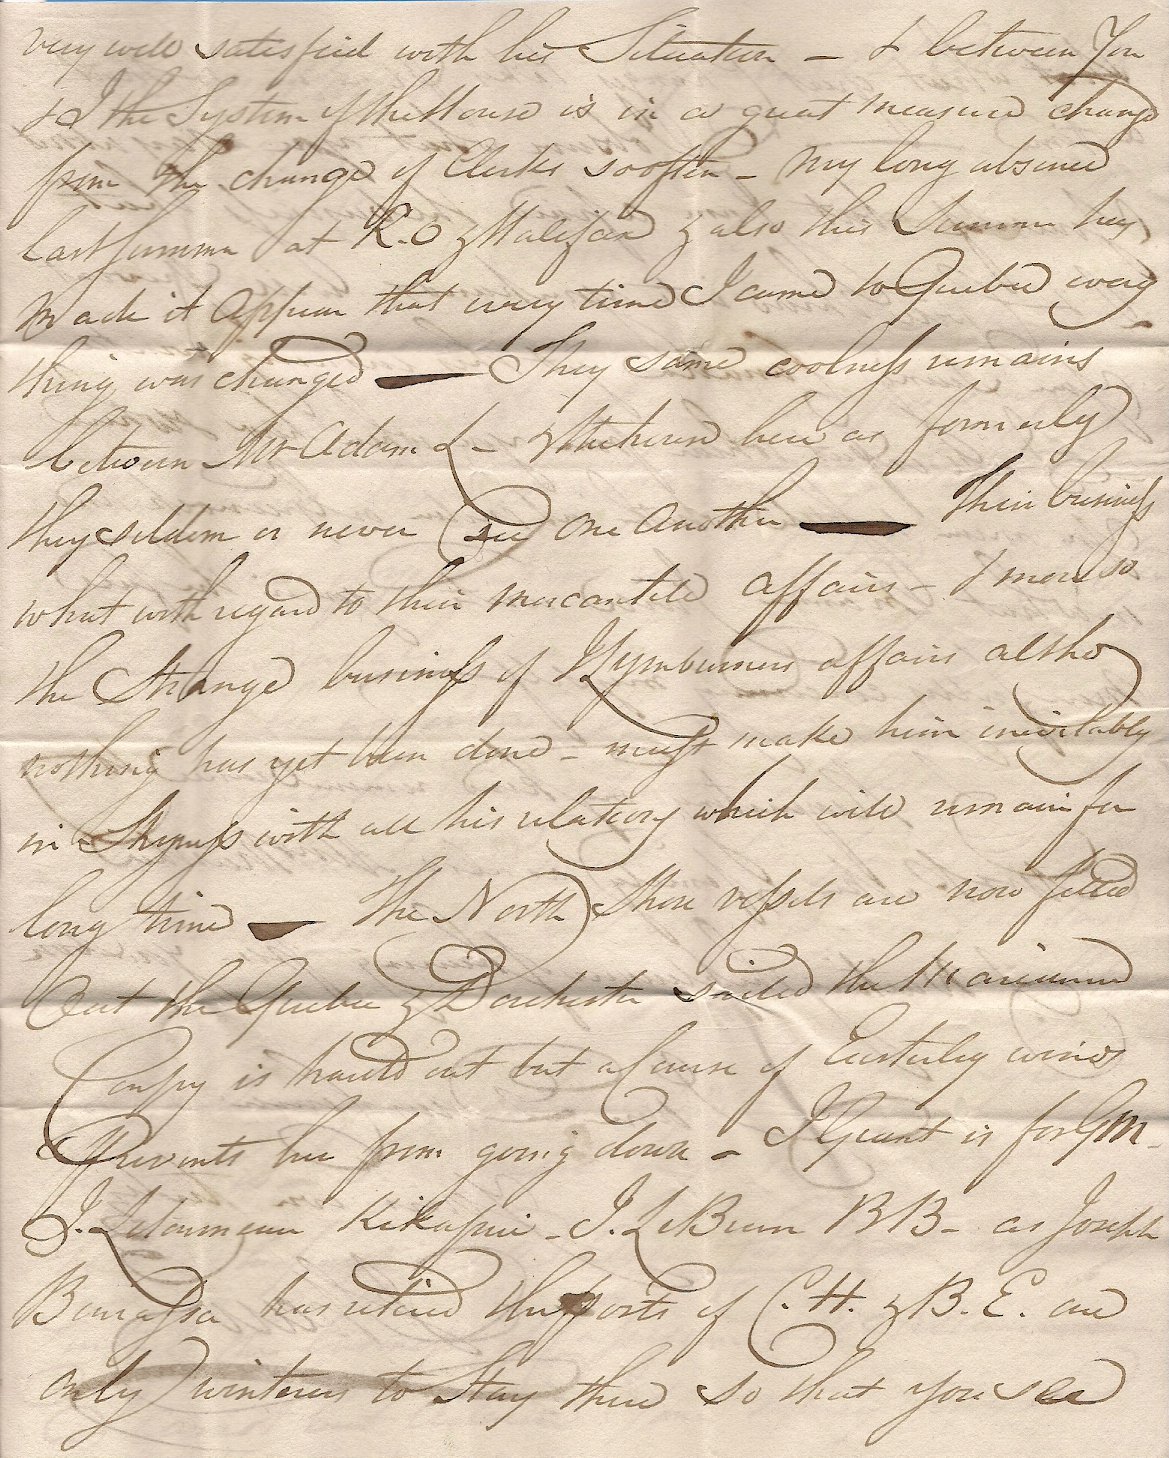 very well satisfied with his Situation — & between You
& I the System of the House is in a great measure change
from the change of Clerks so often — My long absence
last summer at R.O & Halifax & also this Summer has
made it appear that every time I came to Quebec every
thing was changed — They same coolness remains
between Mr Adam L — & here as formerly
they seldom or never See one another — Their business
what with regard to their mercantile affairs — & more so
the Strange business of Lymburners affairs altho
nothing has yet been done — must make him inevitably
in with all his relations which will remain for
long time — The North Shore vessels are now fitted
Out the Quebec & Dorchester sailed the
is hauld out but a Course of Easterly winds
Prevents her from going down — J Grant is for GM —
J. — J. LeBrun BB — as Joseph
Bourassa has retired the posts of C. H. & B. E. are
only winterers to Stay there so that you see